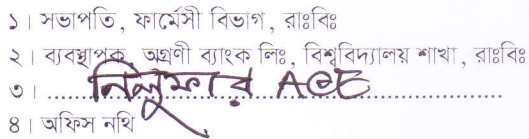 ১। সভাপতি, ফার্মেসী বিভাগ, রাঃবিঃ
২। ব্যবস্থাপক, অগ্রণী ব্যাংক লিঃ, বিশ্ববিদ্যালয় শাখা, রাঃবিঃ
৩। নিলুফার ACE
৪। অফিস নথি